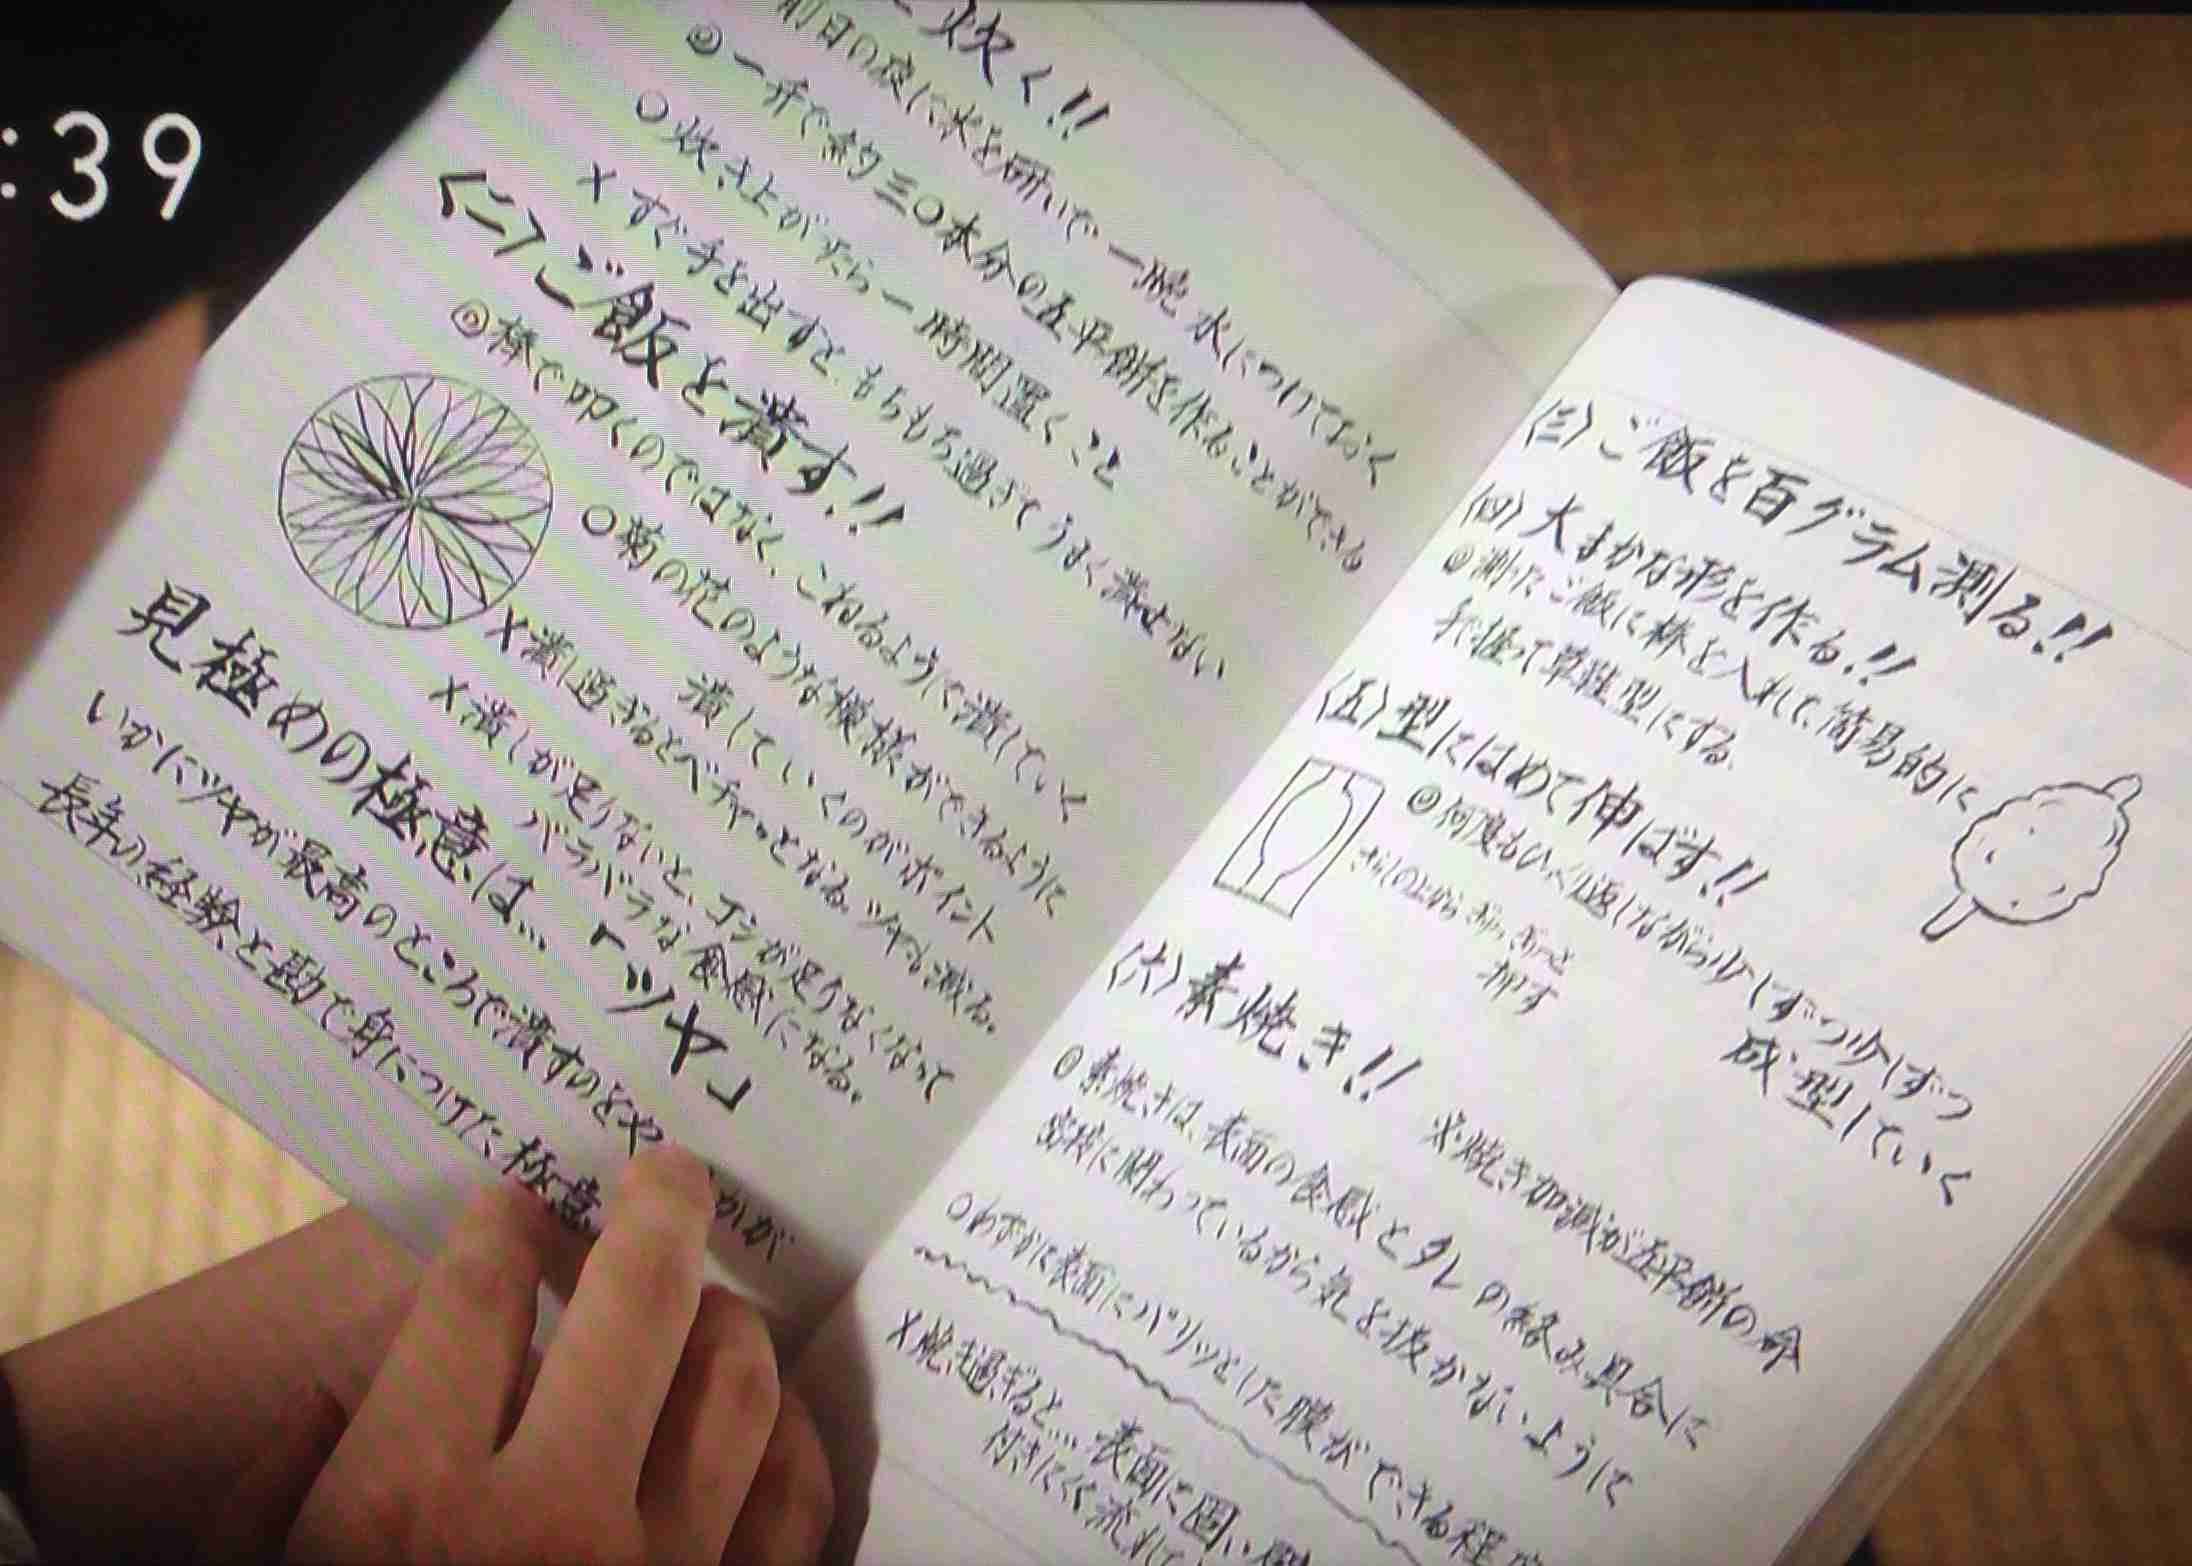 :39
炊く!!
前日の夜に米を研いで一晩水につけておく
◎一升で約三〇本分の五平餅を作ることができる
○炊き上がったら一時間置くこと
×すぐ手を出すと、もちもち過ぎてうまく潰せない
〈二〉ご飯を潰す!!
◎棒で叩くのではなく、こねるように潰していく
○菊の花のような模様ができるように
潰していくのがポイント
×潰し過ぎるとベチャッとなる。ツヤも減る。
×潰しが足りないと、コシが足りなくなって
バラバラな食感になる。
見極めの極意は…「ツヤ」
いかにツヤが最高のところで潰すのをや
かが
長年の経験と勘で身につけた極意
〈三〉ご飯を百グラム測る!!
〈四〉大まかな形を作る!!
◎測ったご飯に棒を入れて、簡易的に
手で握って草鞋型にする。
〈五〉型にはめて伸ばす!!
◎何度もひっくり返しながら少しずつ少しずつ
成型していく
さらしの上から ぎゅっ ぎゅっと
押す
〈六〉素焼き!!
※焼き加減が五平餅の命
◎素焼きは、表面の食感とタレの絡み具合に
密接に関わっているから気を抜かないように
○わずかに表面にパリッとした膜ができる程
×焼き過ぎると… 表面に固い
付きにくく流れて